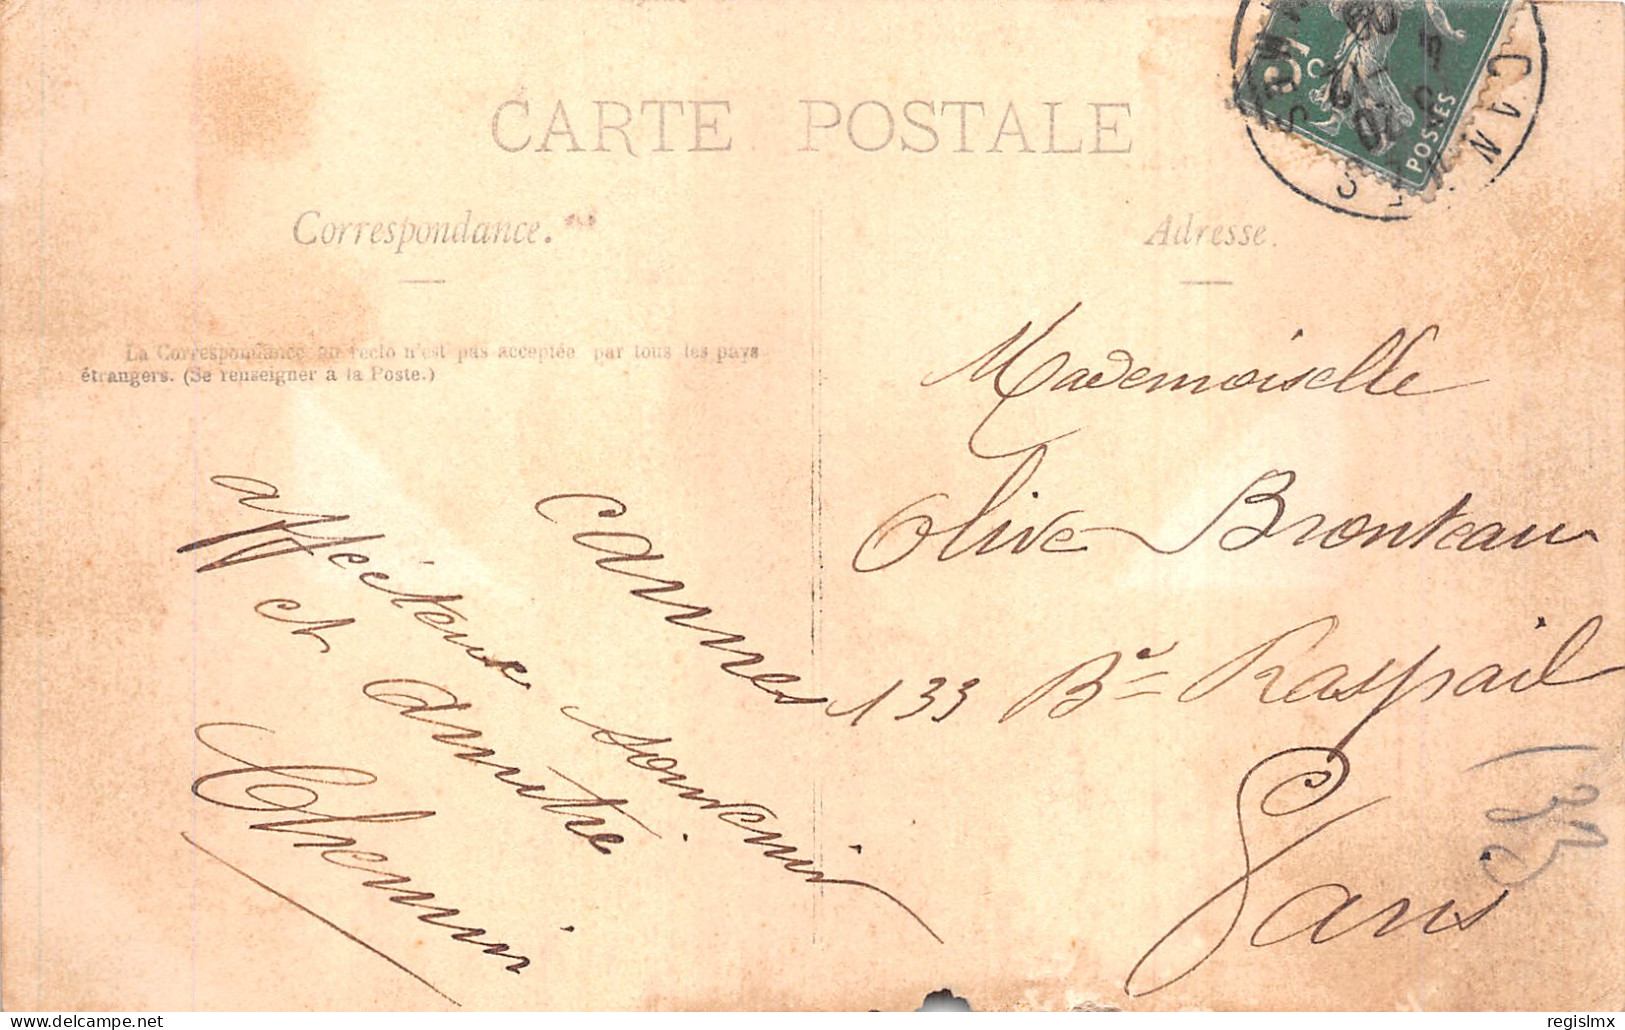 CARTE POSTALE
Correspondance.
Adresse.
La Correspondance au recto n'est pas acceptée par tous les pays
étrangers. (Se renseigner à la Poste.)
Cannes
affectueux souvenir
et amitié
Chemin
Mademoiselle
Olive Bronteau
133 Bd Raspail
Paris
5c
POSTES
CANNES
regislmx